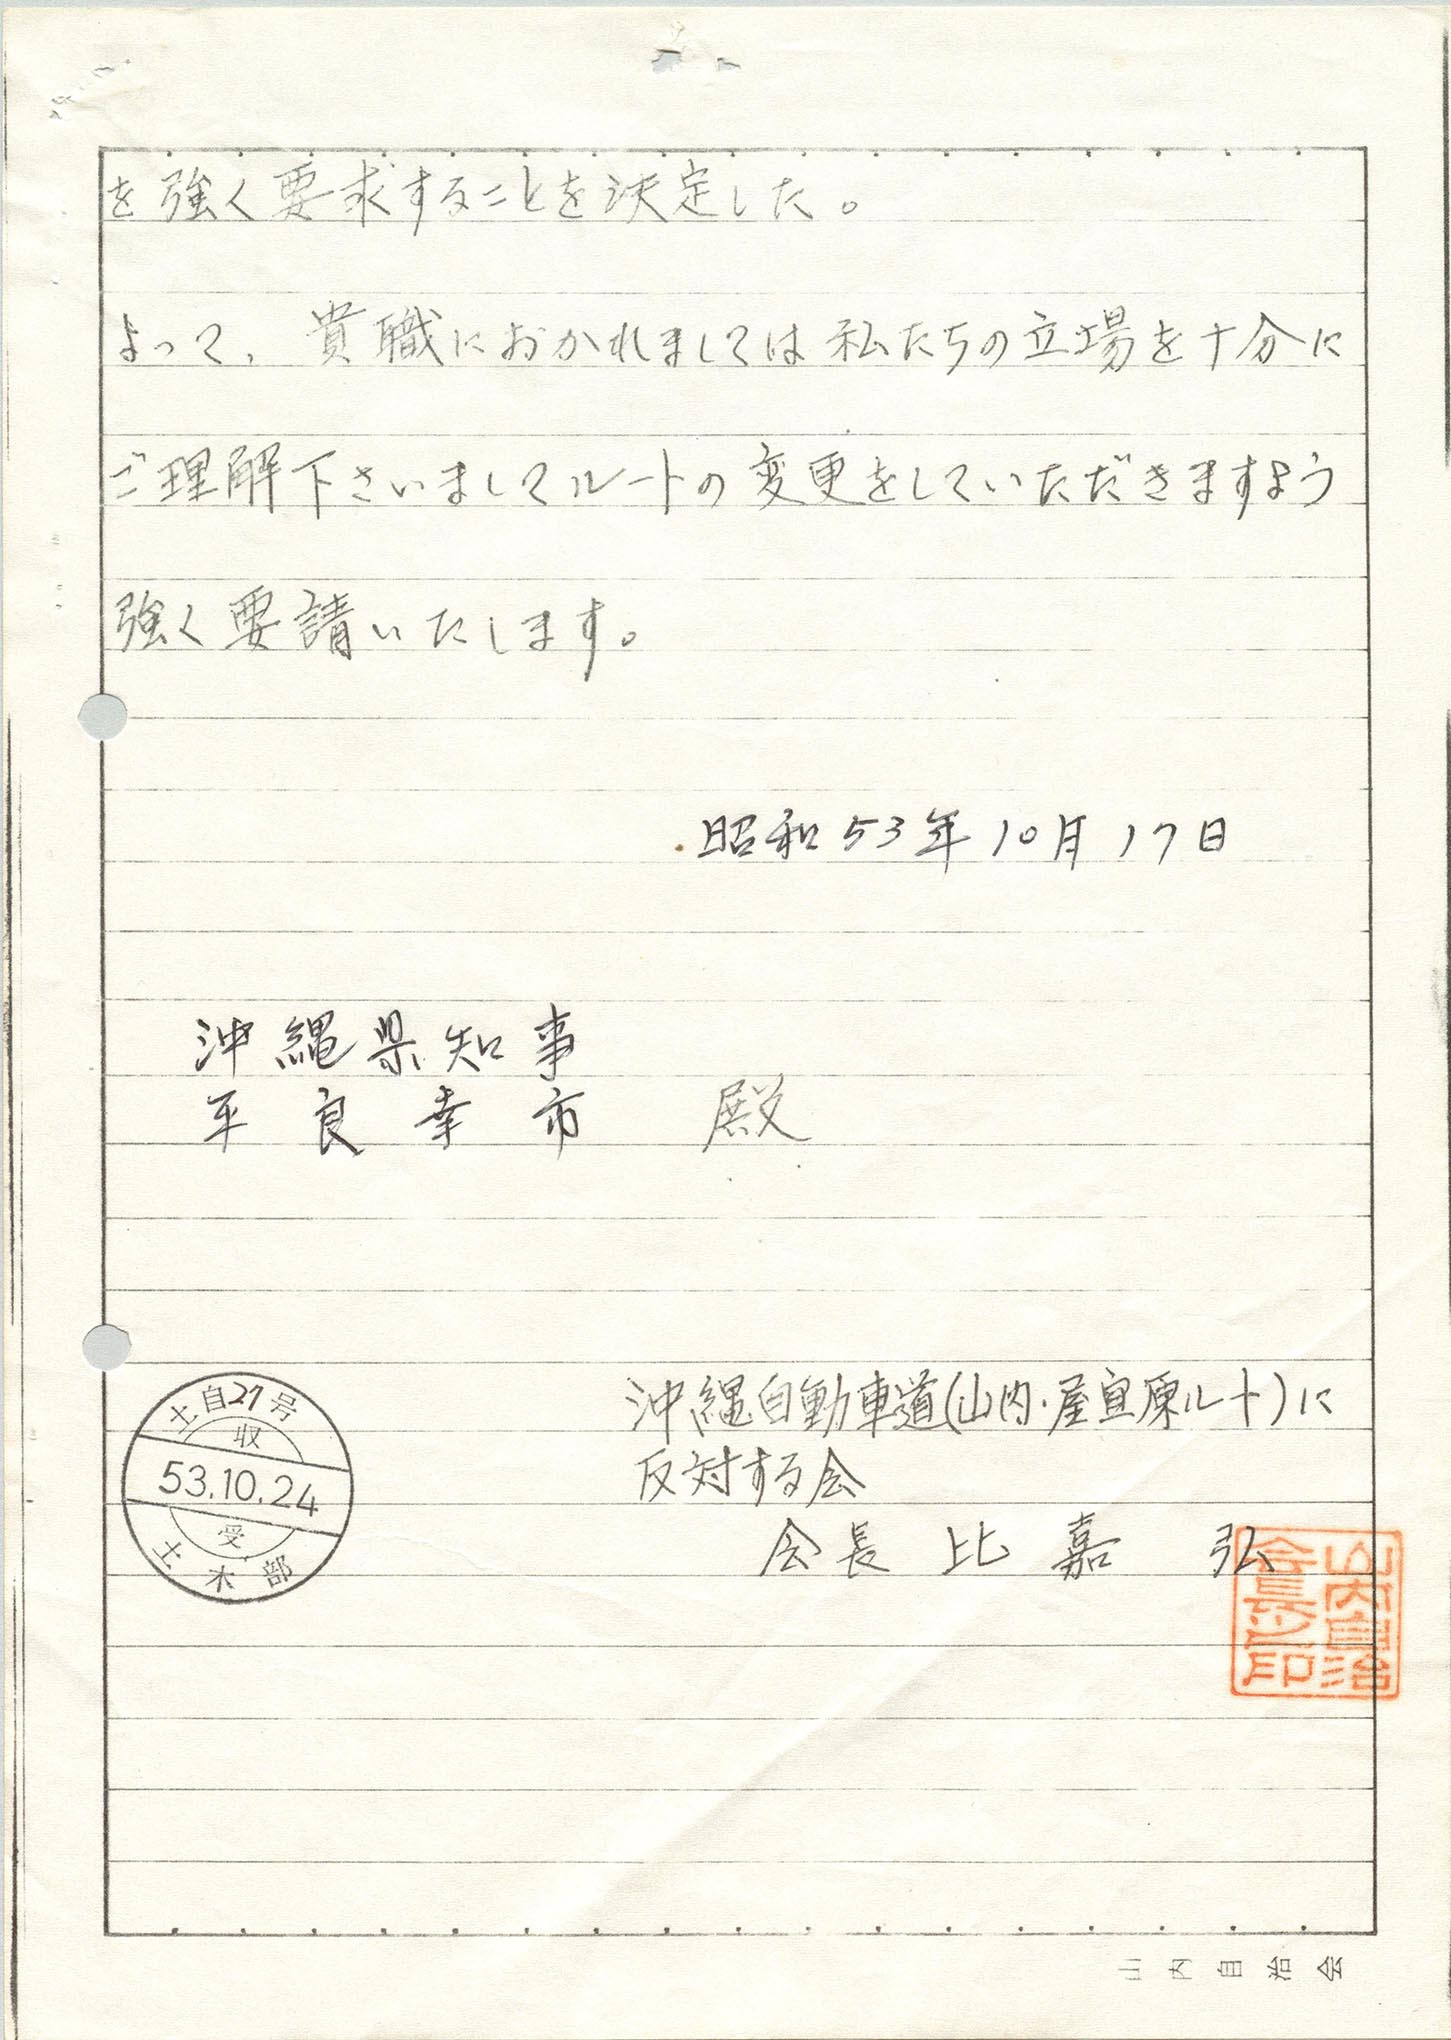 を強く要求することを決定した。
よって、貴職におかれましては私たちの立場を十分に
ご理解下さいましてルートの変更をしていただきますよう
強く要請いたします。
昭和53年10月17日
沖縄県知事
平良幸市 殿
沖縄自動車道(山内・屋宜原ルート)に
反対する会
会長 比嘉 弘
山内自治
会長之印
土自27号
収
53.10.24
受
土木部
山内自治会